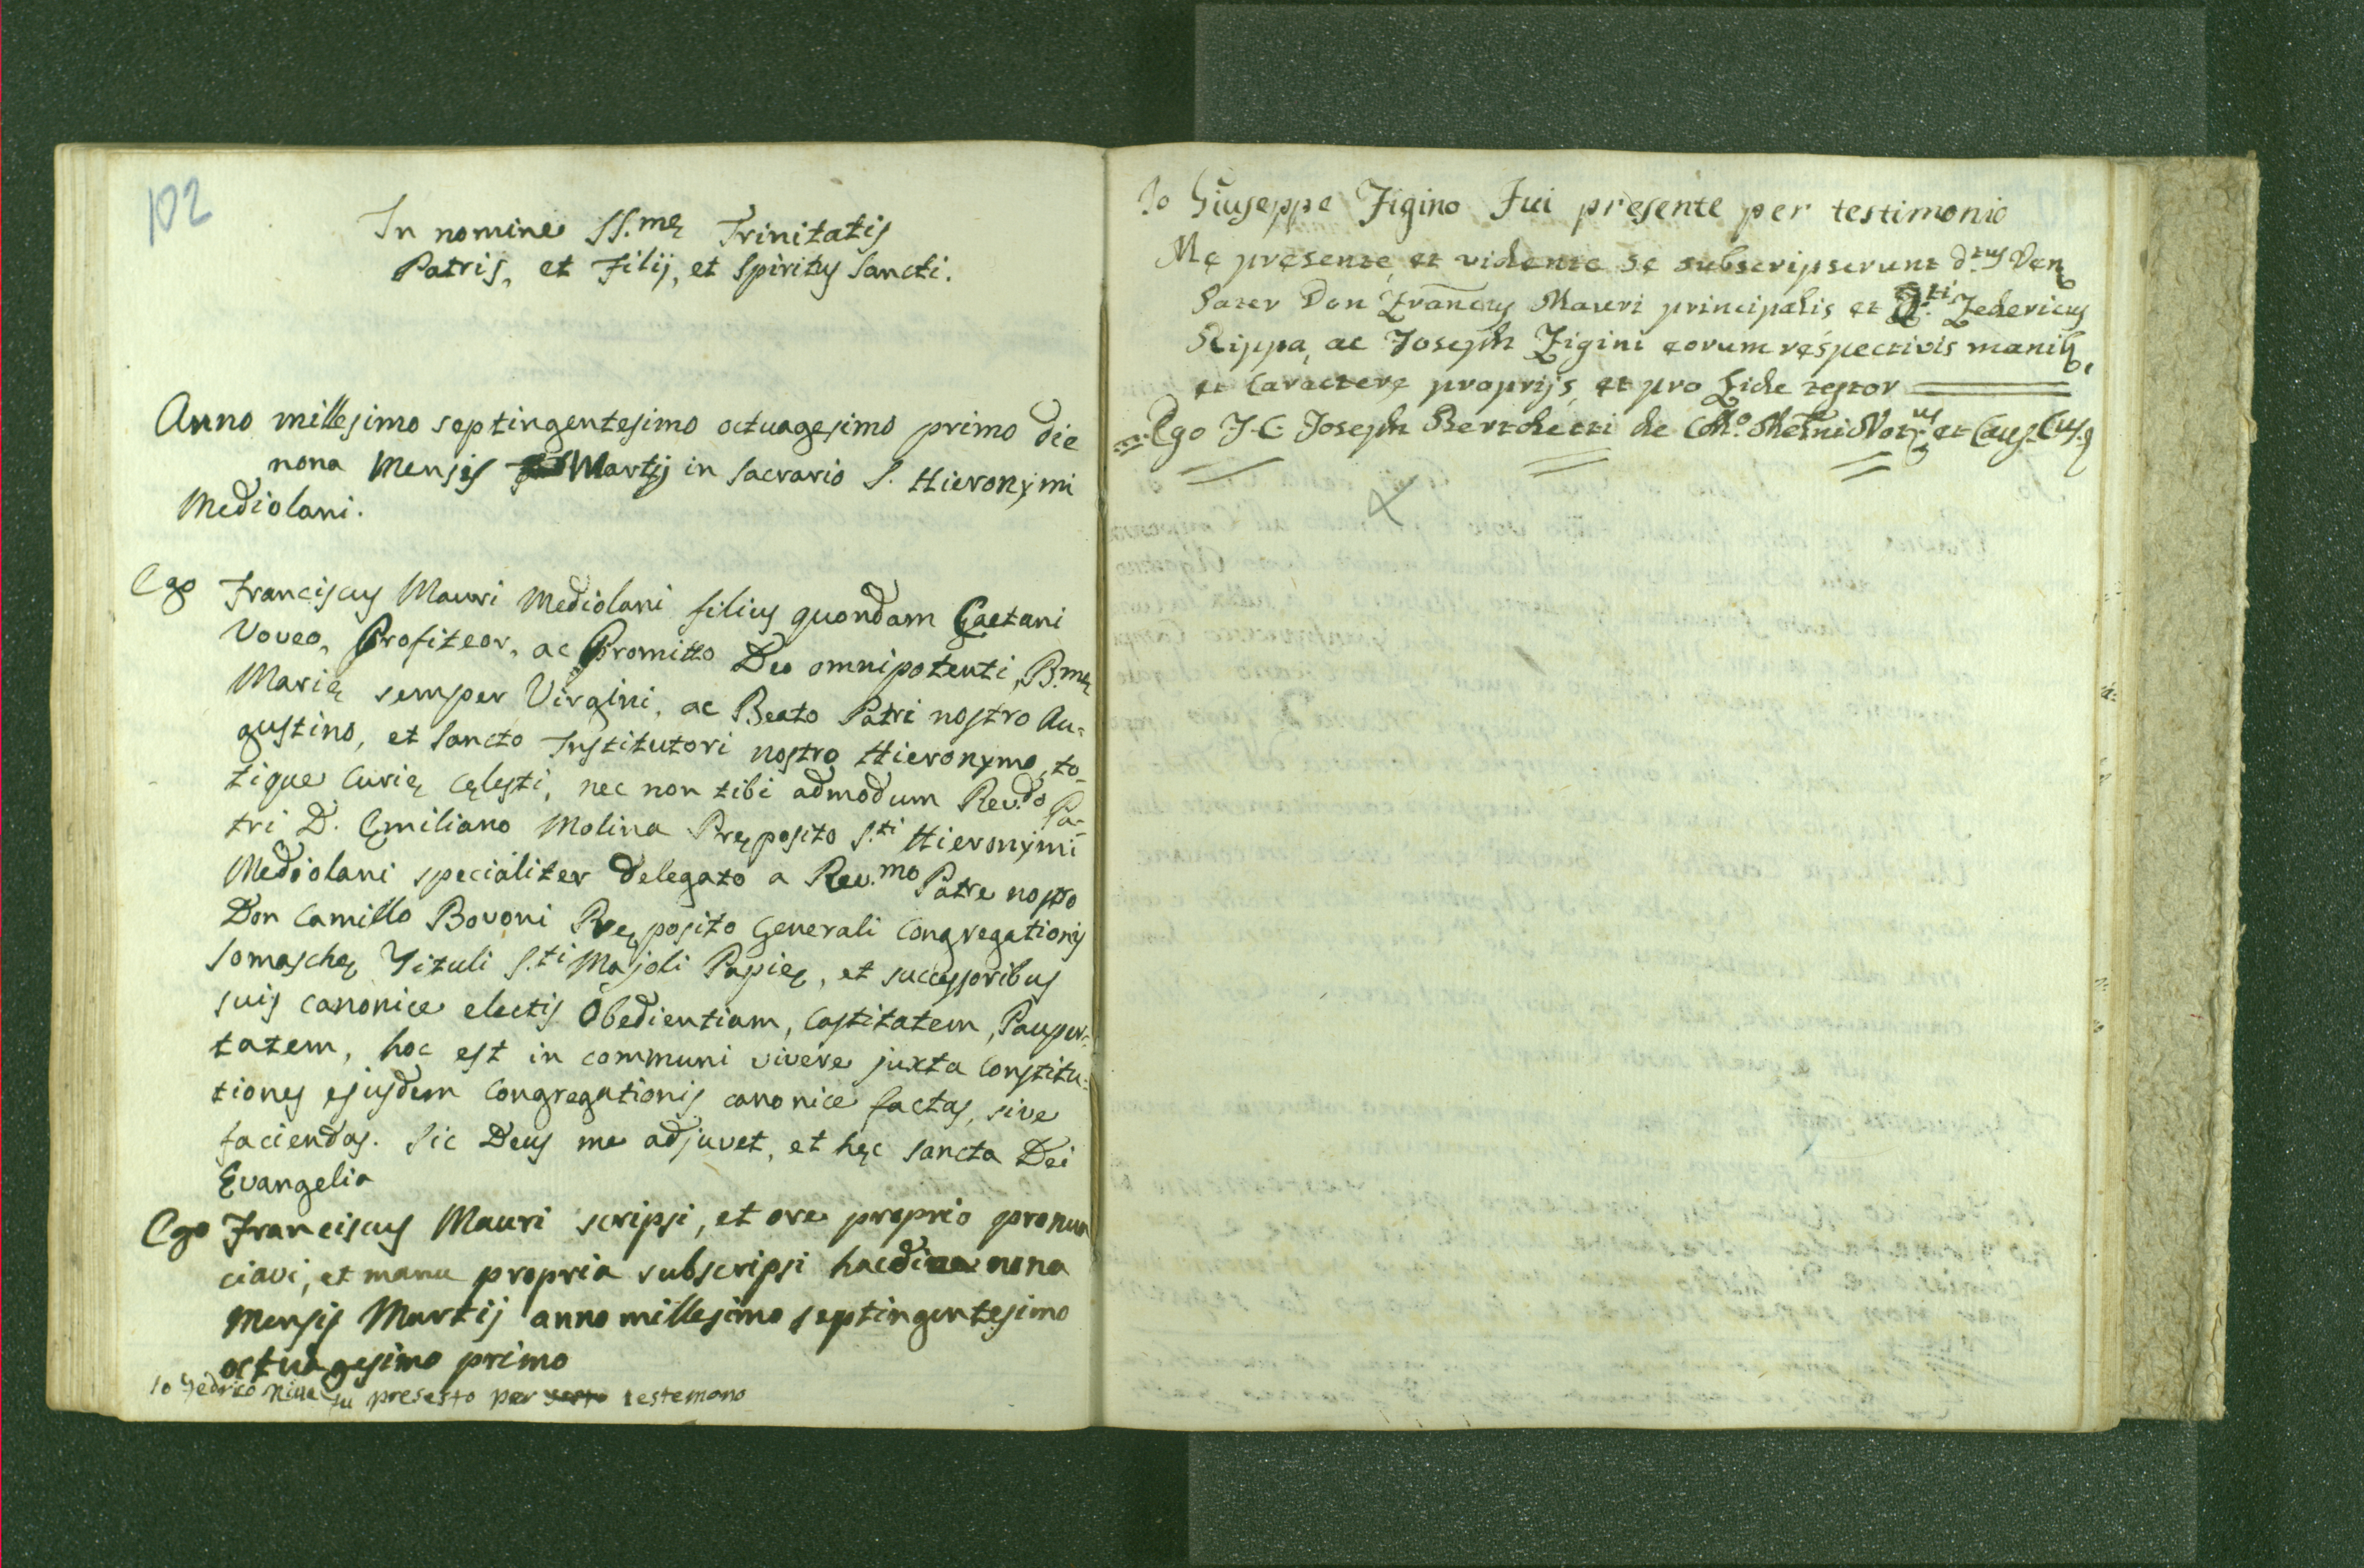 102
In nomine SS.mę Trinitatis
Patris, et Filij, et Spiritus Sancti.
Anno millesimo septingentesimo octuagesimo primo die
nona Mensis Martij in Sacrario S. Hieronymi
Mediolani.
Ego Franciscus Mauri Mediolani filius quondam Gaetani
Voveo, Profiteor, ac Promitto Deo omnipotenti, B.mę
Marię semper Virgini, ac Beato Patri nostro Au-
gustino, et Sancto Institutori nostro Hieronymo, to-
tique Curię cęlesti, nec non tibi admodum Rev.do Pa-
tri D. Emiliano Molina Pręposito S.ti Hieronymi
Mediolani specialiter delegato a Rev.mo Patre nostro
Don Camillo Bovoni Pręposito Generali Congregationis
Somaschę Tituli S.ti Majoli Papię, et successoribus
suis canonice electis Obedientiam, Castitatem, Pauper-
tatem, hoc est in communi vivere juxta Constitu-
tiones ejusdem Congregationis canonice factas, sive
faciendas. Sic Deus me adjuvet, et hęc Sancta Dei
Evangelia
Ego Franciscus Mauri scripsi, et ore proprio pronun
ciavi, et manu propria subscripsi hac die nona
Mensis Martij anno millesimo septingentesimo
octuagesimo primo
Io Fedrico fu presesto per testemono
Io Giuseppe Figino Fui presente per testimonio
Me pręsente, et vidente se subscripserunt d.tus Ven
Pater Don Francus Mauri principalis et D.ti Federicus
Rippa, ac Joseph Figini eorum respectivis manib,
et Caractere proprijs, et pro fide testor
Ego J. C. Joseph Bertoletti de et Caus.